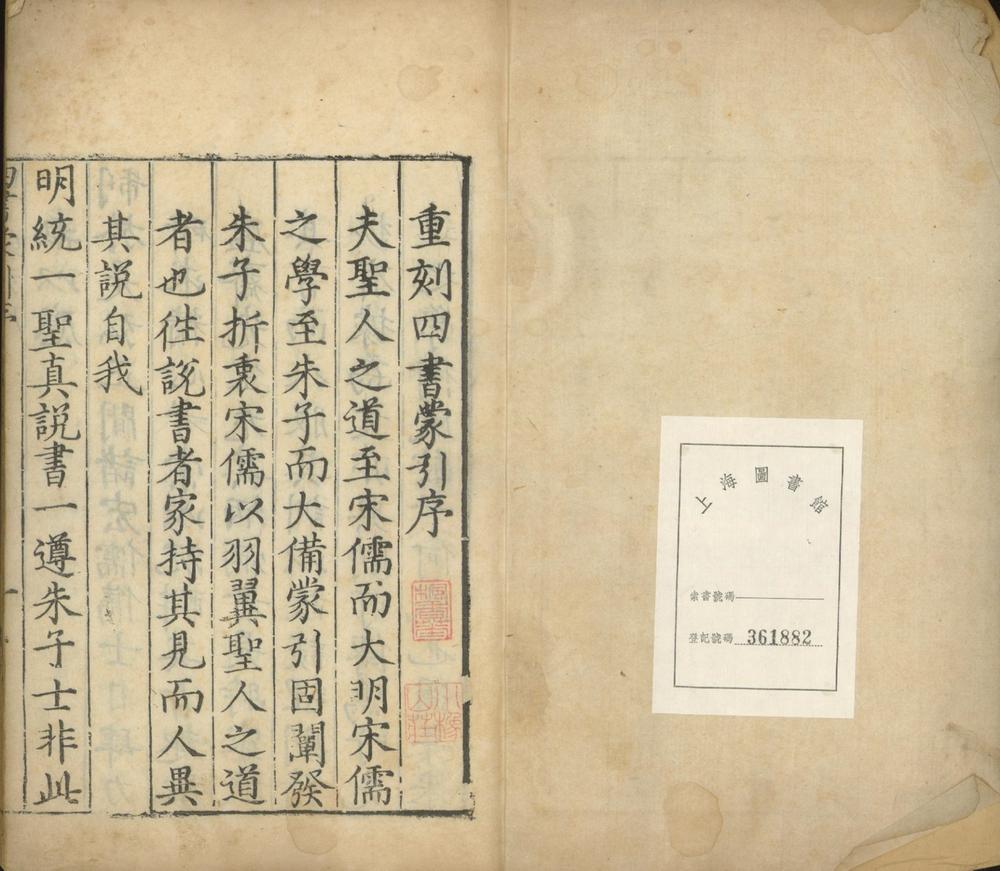 上海圖書館
索書號碼
登記號碼 361882
重刻四書蒙引序
夫聖人之道至宋儒而大明宋儒
之學至朱子而大備蒙引固闡發
朱子折衷宋儒以羽翼聖人之道
者也徃說書者家持其見而人異
其說自我
明統一聖真說書一遵朱子士非此